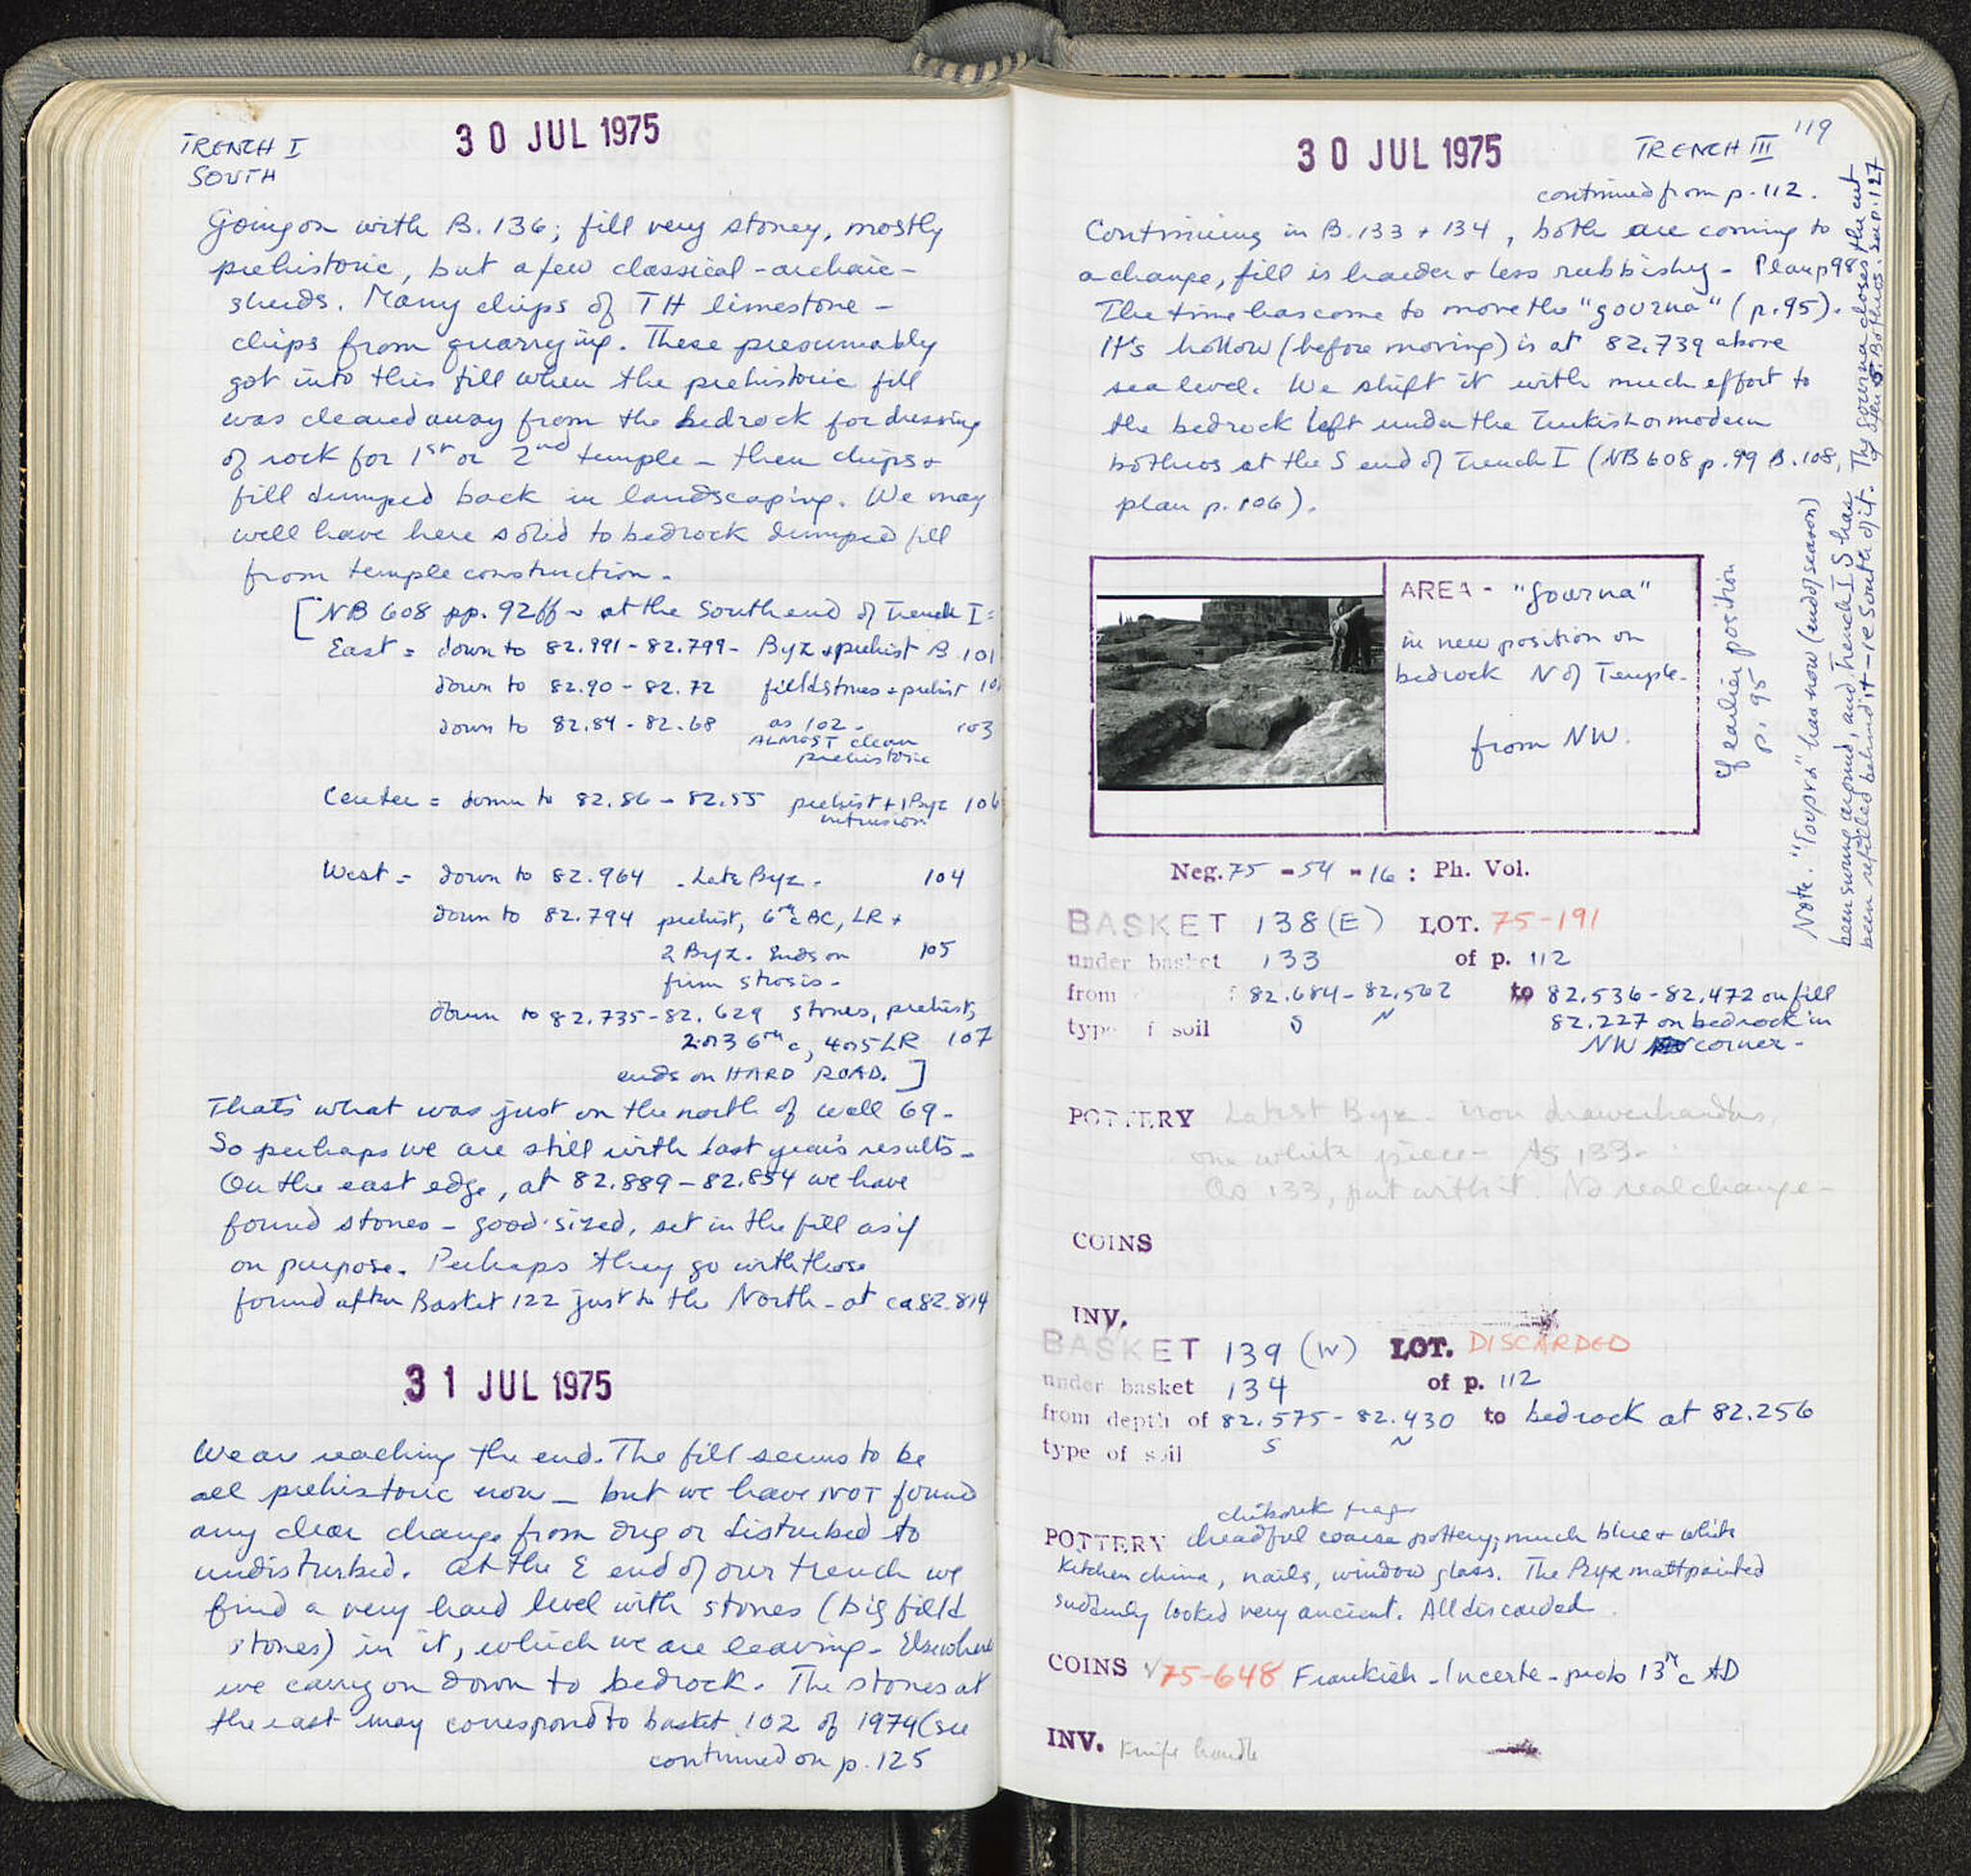 TRENCH I
SOUTH
30 JUL 1975
Going on with B. 136; fill very stoney, mostly
prehistoric, but a few classical-archaic-
sherds. Many chips of TH limestone -
chips from quarrying. These presumably
got into this fill when the prehistoric fill
was cleared away from the bedrock for dressing
of rock for 1st or 2nd temple - then chips +
fill dumped back in landscaping. We may
well have here solid to bedrock dumped fill
from temple construction.
[NB 608 pp. 92ff - at the South end of Trench I =
East = down to 82.991 - 82.799 - Byz + prehist B 101
down to 82.90 - 82.72 fieldstones + prehist 10
down to 82.84 - 82.68 as 102 - 103
ALMOST clean
prehistoric
Center = down to 82.86 - 82.55 prehist + 1 Byz 106
intrusion
West = down to 82.964 - Late Byz. 104
down to 82.794 prehist, 6th c BC, LR +
2 Byz. Ends on 105
firm strosis -
down to 82.735 - 82.629 stones, prehist,
2 or 3 6th c, 4 or 5 LR 107
ends on HARD ROAD. ]
Thats what was just on the north of wall 69 -
So perhaps we are still with last year's results -
On the east edge, at 82.889 - 82.854 we have
found stones - good-sized, set in the fill as if
on purpose. Perhaps they go with those
found after Basket 122 just to the North - at ca 82.814
31 JUL 1975
We are reaching the end. The fill seems to be
all prehistoric now - but we have NOT found
any clear change from dug or disturbed to
undisturbed. At the E end of our trench we
find a very hard level with stones (big field
stones) in it, which we are leaving - Elsewhere
we carry on down to bedrock. The stones at
the east may correspond to basket 102 of 1974 (see
continued on p. 125
30 JUL 1975
TRENCH III
119
continued from p. 112.
Continuing in B. 133 + 134, both are coming to
a change, fill is harder + less rubbishy - Plan p 98
The time has come to move the "gourna" (p. 95).
It's hollow (before moving) is at 82.739 above
sea level. We shift it with much effort to
the bedrock left under the Turkish or modern
bothros at the S end of Trench I (NB 608 p. 99 B. 108,
plan p. 106).
AREA - "gourna"
in new position on
bedrock N of Temple.
from NW.
cf earlier position
p. 95
Note. "Γούρνα" has now (end of season)
been swung around, and Trench I S has
been refilled behind it - re South of it. The gourna closes the cut
of Sten G. Bothros. see p. 127
Neg. 75 - 54 - 16 : Ph. Vol.
BASKET 138 (E) LOT. 75-191
under basket 133 of p. 112
from : 82.684 - 82.562 to 82.536 - 82.472 on fill
type of soil S N 82.227 on bedrock in
NW corner -
POTTERY Latest Byz - iron drawerhandles,
one white piece - As 133 -
As 133, put with it. No real change -
COINS
INV.
BASKET 139 (W) LOT. DISCARDED
under basket 134 of p. 112
from depth of 82.575 - 82.430 to bedrock at 82.256
type of soil S N
chibouk frag
POTTERY dreadful coarse pottery; much blue + white
kitchen china, nails, window glass. The Byz mattpainted
suddenly looked very ancient. All discarded.
COINS √75-648 Frankish - Incerte - prob 13th c AD
INV. Knife handle